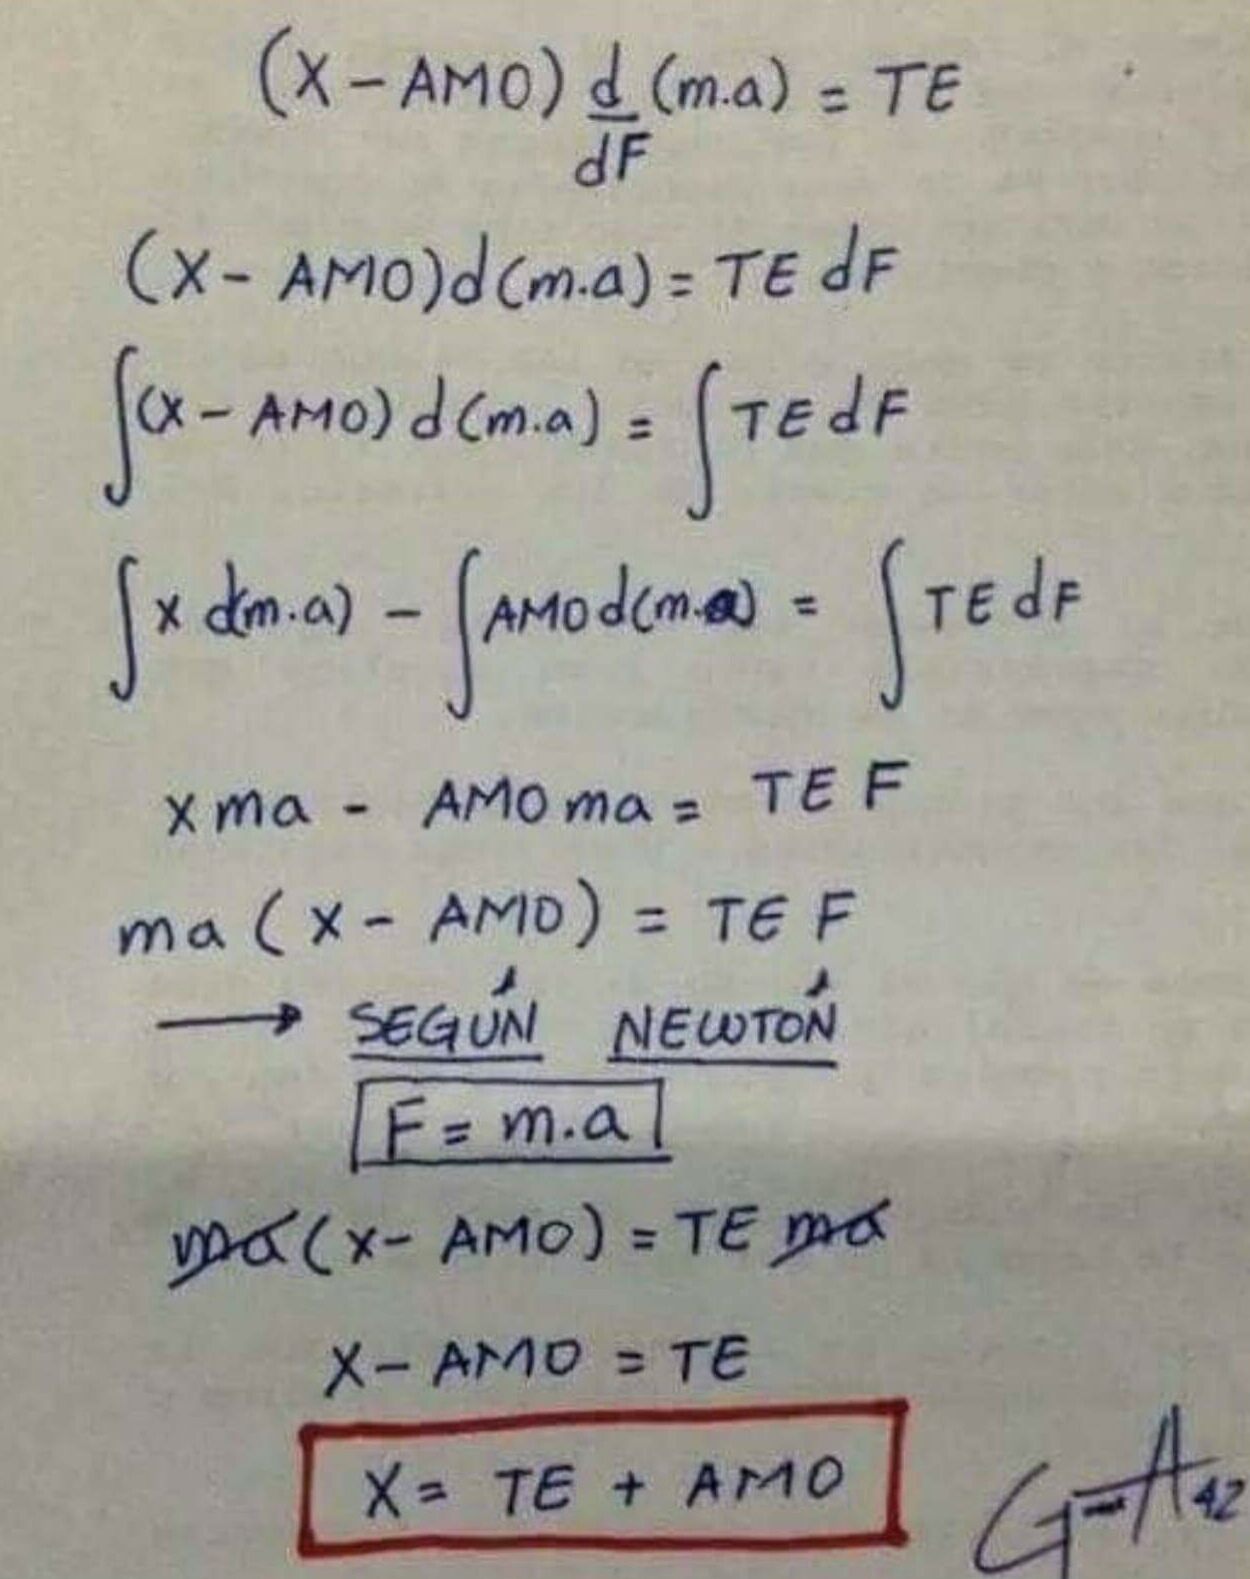 (X - AMO) d/dF (m.a) = TE
(X - AMO) d(m.a) = TE dF
∫(X - AMO) d(m.a) = ∫TE dF
∫x d(m.a) - ∫AMO d(m.a) = ∫TE dF
x ma - AMO ma = TE F
ma (X - AMO) = TE F
→ SEGÚN NEWTÓN
F = m.a
ma (x - AMO) = TE ma
X - AMO = TE
X = TE + AMO
G-A42